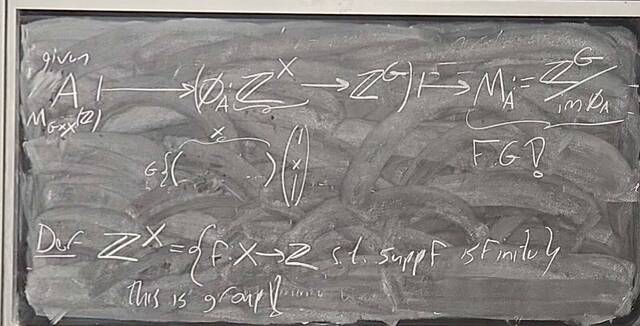 given
A ⟼ (ϕ_A: ℤ^X → ℤ^G) ⟼ M_A := ℤ^G / im ϕ_A
M_{G×X}(ℤ)
F.G!
X
G{( ... )(X)
Def ℤ^X = {f: X → ℤ s.t. supp f is finite}
this is group!